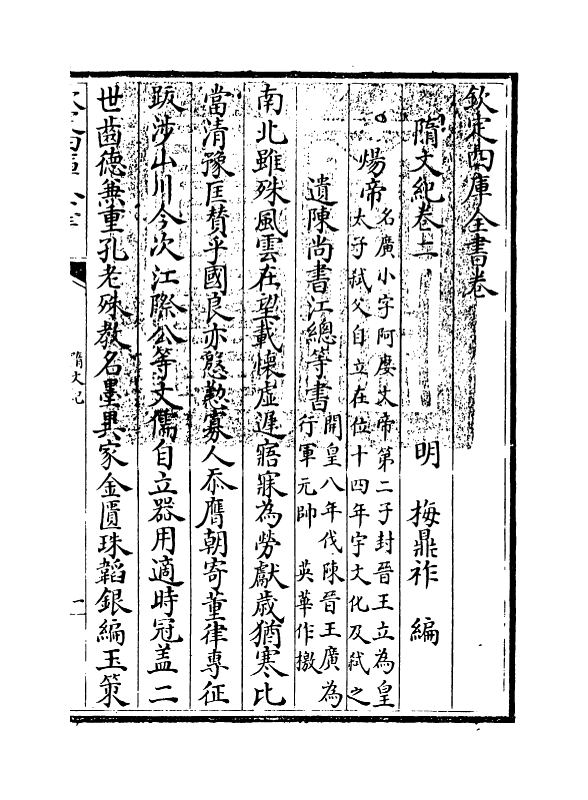 欽定四庫全書卷
隋文紀卷二　　　明　梅鼎祚　編
煬帝名廣小字阿𡡉文帝第二子封晉王立為皇
太子弒父自立在位十四年宇文化及弒之
遺陳尚書江總等書開皇八年伐陳晉王廣為
行軍元帥　英華作檄
南北雖殊風雲在望載懷虚遲寤寐為勞獻歲猶寒比
當清豫匡賛乎國良亦慇懃寡人忝膺朝寄董律專征
跋涉山川今次江際公等文儒自立器用適時冠盖二
世齒德兼重孔老殊教名墨異家金匱珠韜銀編玉策
隋文紀
一